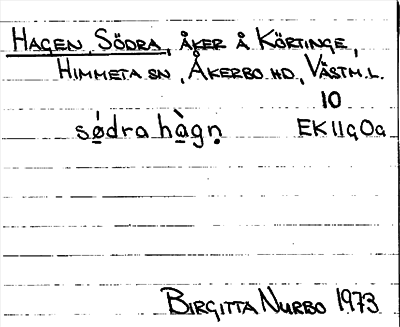 HAGEN, SÖDRA, ÅKER Å KÖRTINGE,
HIMMETA SN, ÅKERBO HD., VÄSTM.L.
10
sǿ̱dra hà̱gṇ EK11g0a
BIRGITTA NURBO 1973